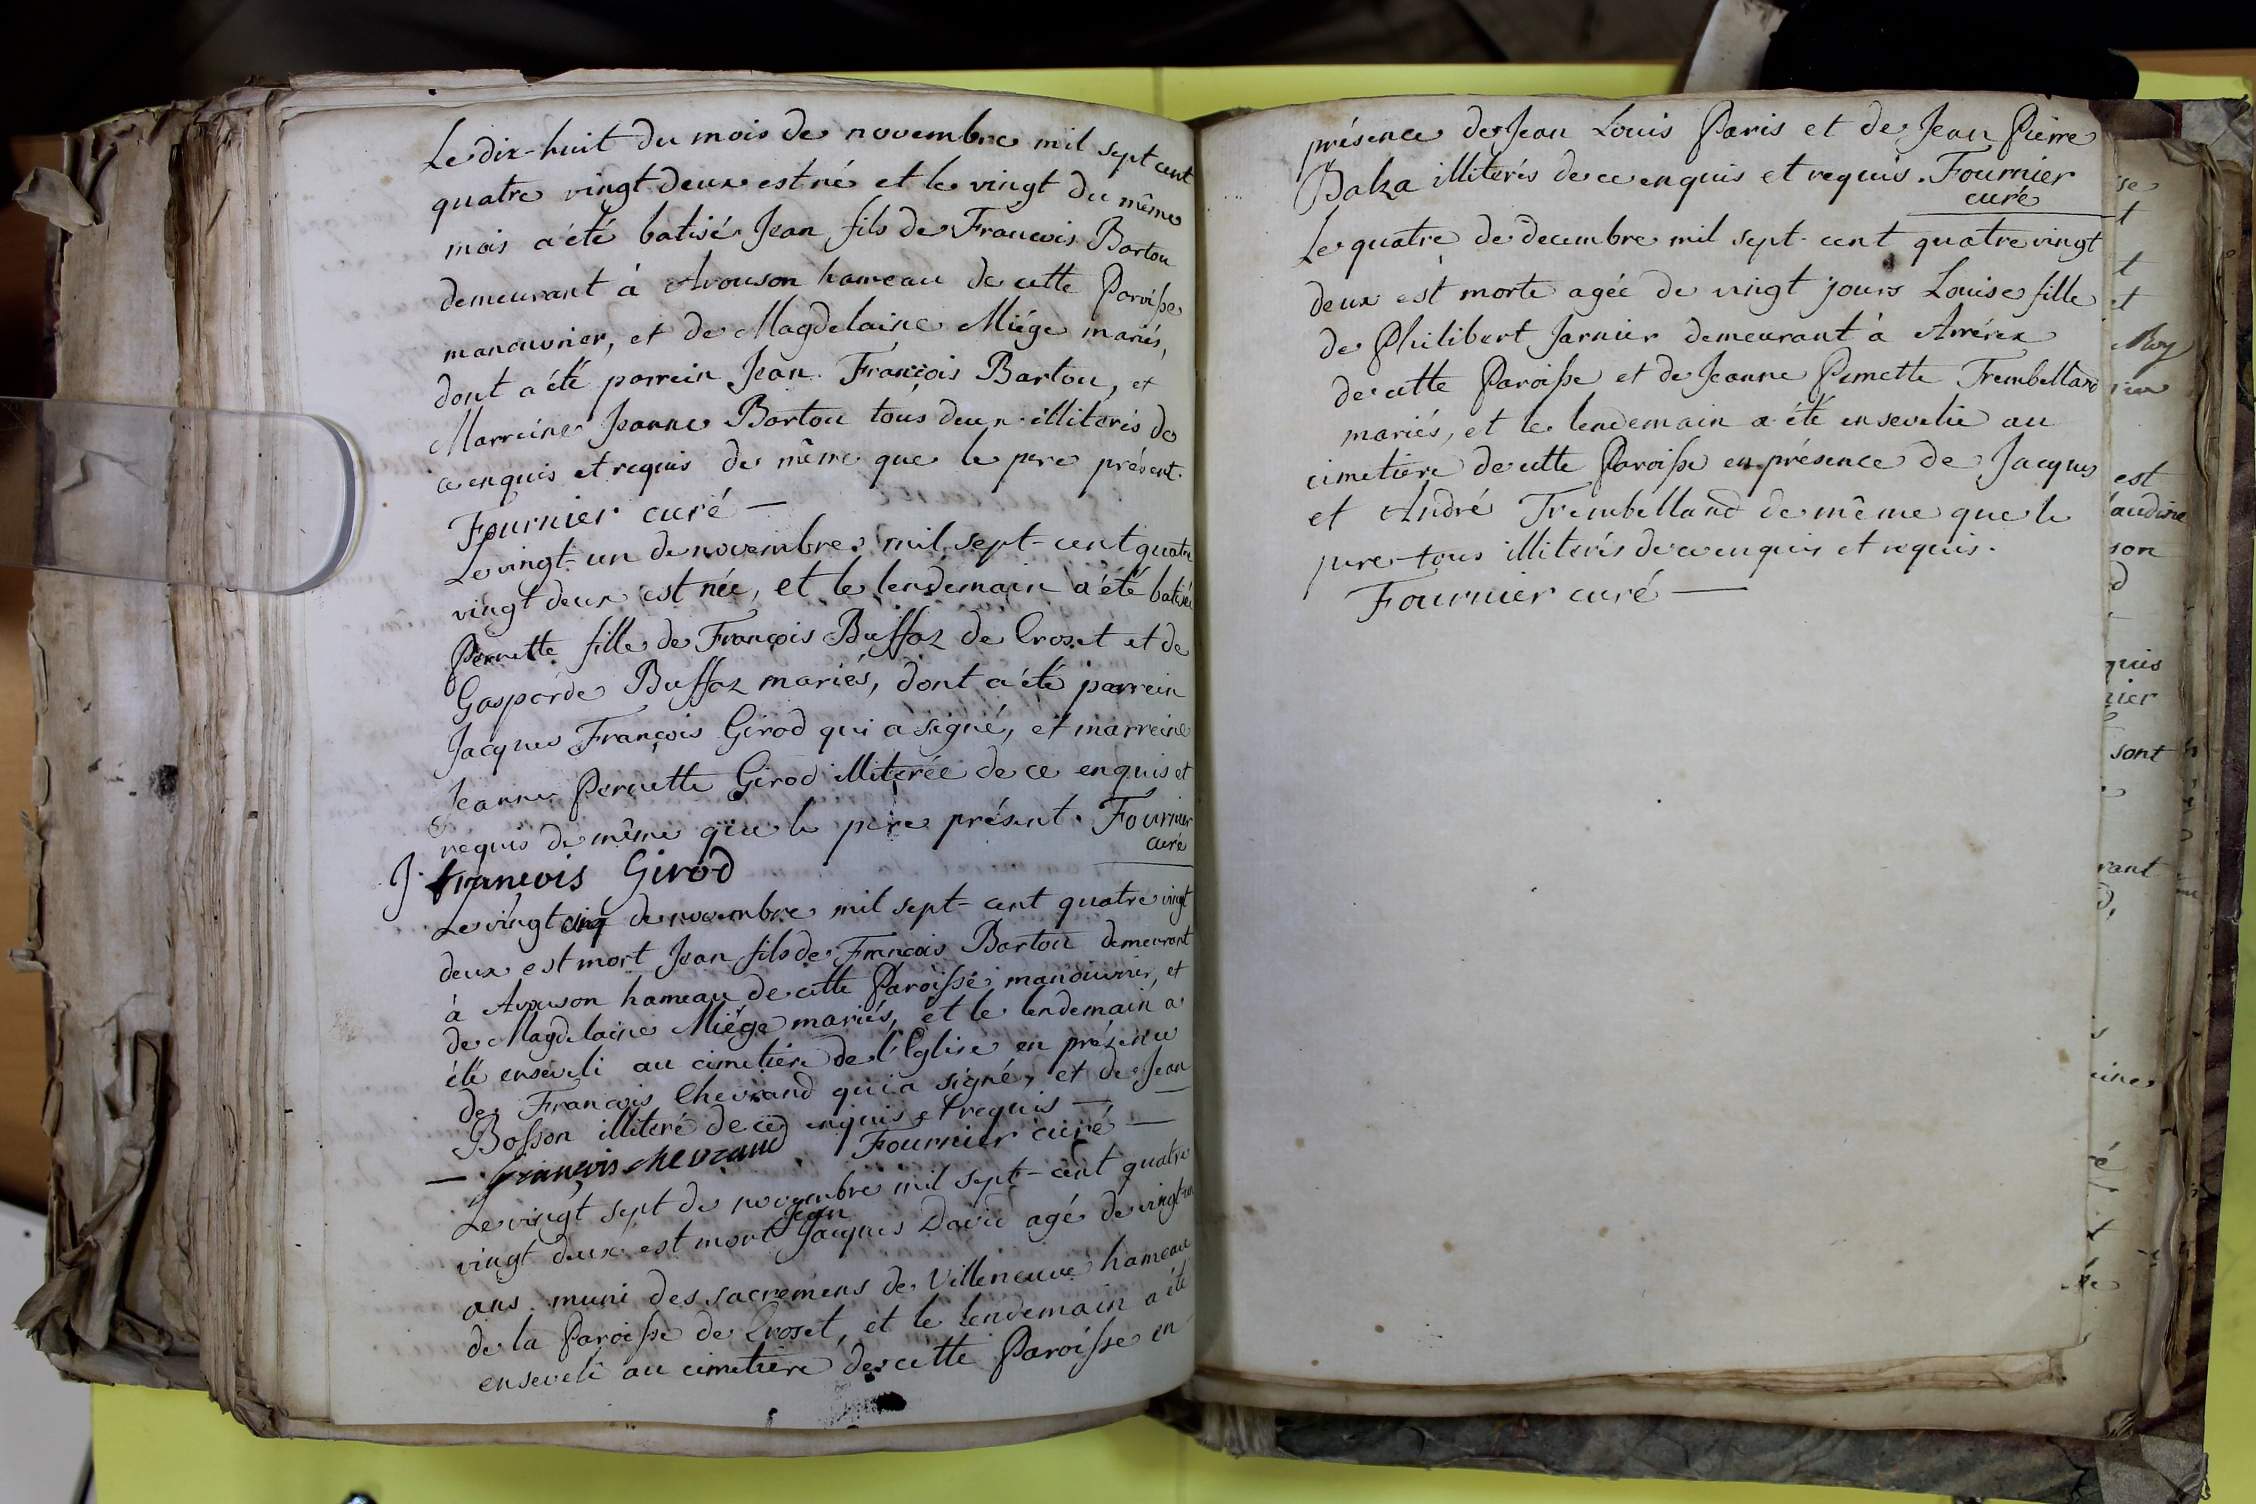 Le dix-huit du mois de novembre mil sept cent
quatre vingt deux est né et le vingt du même
mois a été batisé Jean fils de Francois Bartou
demeurant à Avouson hameau de cette Paroisse
manouvrier, et de Magdelaine Miége mariés,
dont a été parrein Jean François Bartou, et
Marreine Jeanne Bartou tous deux illiterés de
ce enquis et requis de même que le pere présent.
Fournier curé —
Le vingt-un de novembre mil sept-cent quatre
vingt deux est née, et le lendemain a été batisée
Pernette fille de François Buffaz de Croset et de
Gasparde Buffaz mariés, dont a été parrein
Jacques François Girod qui a signé, et marreine
Jeanne Pernette Girod illiterée de ce enquis et
requis de même que le pere présent. Fournier
curé
J. francois Girod
Le vingt cinq de novembre mil sept-cent quatre vingt
deux est mort Jean fils de Francois Bartou demeurant
à Avouson hameau de cette Paroisse manouvrier, et
de Magdelaine Miége mariés, et le lendemain a
été enseveli au cimetiére de l'Eglise en présence
de Francois Chevrand qui a signé, et de Jean
Bosson illiteré de ce enquis et requis —
— françois chevrand Fournier curé —
Le vingt sept de novembre mil sept-cent quatre
Jean
vingt deux est mort Jacques David agé de vingt-un
ans muni des sacremens de Villeneuve hameau
de la Paroisse de Croset, et le lendemain a été
enseveli au cimetiere de cette Paroisse en
présence de Jean Louis Paris et de Jean Pierre
Balza illiterés de ce enquis et requis. Fournier
curé
Le quatre de decembre mil sept-cent quatre vingt
deux est morte agée de vingt jours Louise fille
de Philibert Jarnier demeurant à
de cette Paroisse et de Jeanne Pernette Trembelland
mariés, et le lendemain a été ensevelie au
cimetiere de cette Paroisse en présence de Jacques
et André Trembelland de même que le
pere tous illiterés de ce enquis et requis.
Fournier curé —
est
sont